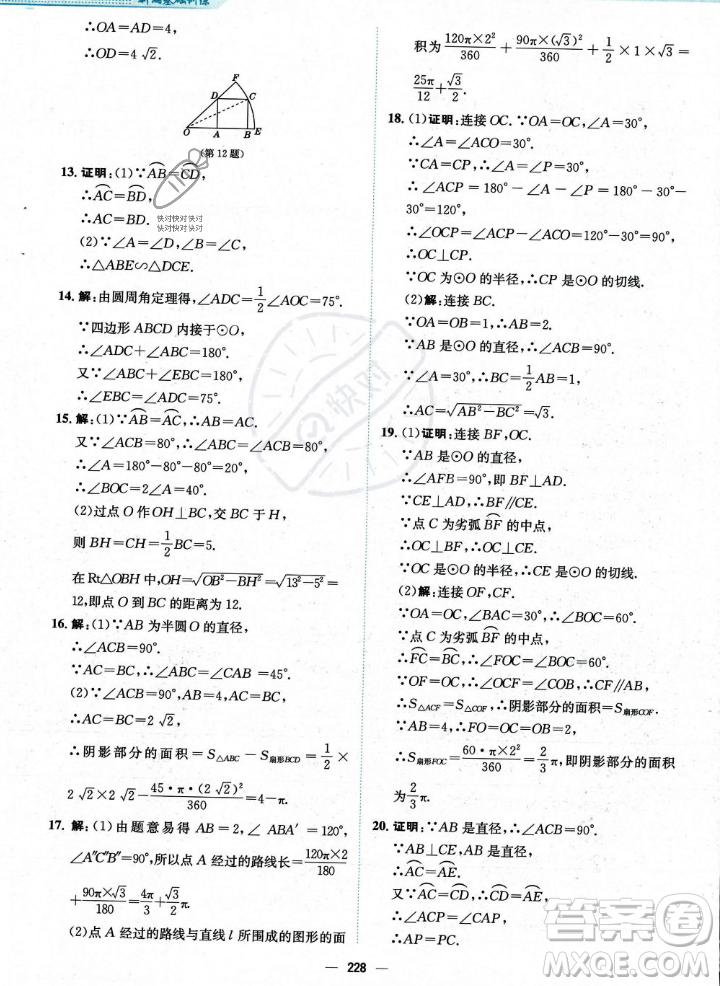 ∴OA=AD=4,
∴OD=4√2.
F
D C
O A B E
(第12题)
13. 证明:(1)∵⌒AB=⌒CD,
∴⌒AC=⌒BD,
∴AC=BD.
快对快对快对
快对快对快对
(2)∵∠A=∠D,∠B=∠C,
∴△ABE∽△DCE.
14. 解:由圆周角定理得,∠ADC=1/2∠AOC=75°.
∵四边形 ABCD 内接于⊙O,
∴∠ADC+∠ABC=180°.
又∵∠ABC+∠EBC=180°,
∴∠EBC=∠ADC=75°.
15. 解:(1)∵⌒AB=⌒AC,∴AB=AC.
又∵∠ACB=80°,∴∠ABC=80°,
∴∠A=180°-80°-80°=20°.
∴∠BOC=2∠A=40°.
(2)过点 O 作 OH⊥BC,交 BC 于点 H,
则 BH=CH=1/2BC=5.
在 Rt△OBH 中,OH=√(OB²-BH²)=√(13²-5²)=
12,即点 O 到 BC 的距离为 12.
16. 解:(1)∵AB 为半圆 O 的直径,
∴∠ACB=90°.
∵AC=BC,∴∠ABC=∠CAB=45°.
(2)∵∠ACB=90°,AB=4,AC=BC,
∴AC=BC=2√2,
∴阴影部分的面积=S△ABC-S扇形BCD=1/2×
2√2×2√2-45·π·(2√2)²/360=4-π.
17. 解:(1)由题意易得 AB=2,∠ABA′=120°,
∠A″C″B″=90°,所以点 A 经过的路线长=120π×2/180
+90π×√3/180=4π/3+√3/2π.
(2)点 A 经过的路线与直线 l 所围成的图形的面
积为120π×2²/360+90π×(√3)²/360+1/2×1×√3=
25π/12+√3/2.
18. (1)证明:连接 OC.∵OA=OC,∠A=30°,
∴∠ACO=∠A=30°.
∵CA=CP,∴∠A=∠P=30°,
∴∠ACP=180°-∠A-∠P=180°-30°-
30°=120°,
∴∠OCP=∠ACP-∠ACO=120°-30°=90°,
∴OC⊥CP.
∵OC 为⊙O 的半径,∴CP 是⊙O 的切线.
(2)解:连接 BC.
∵OA=OB=1,∴AB=2.
∵AB 为⊙O 的直径,∴∠ACB=90°.
∵∠A=30°,∴BC=1/2AB=1,
∴AC=√(AB²-BC²)=√3.
19. (1)证明:连接 BF,OC.
∵AB 是⊙O 的直径,
∴∠AFB=90°,即 BF⊥AD.
∵CE⊥AD,∴BF∥CE.
∵点 C 为劣弧⌒BF的中点,
∴OC⊥BF,∴OC⊥CE.
∵OC 是⊙O 的半径,∴CE 是⊙O 的切线.
(2)解:连接 OF,CF.
∵OA=OC,∠BAC=30°,∴∠BOC=60°.
∵点 C 为劣弧⌒BF的中点,
∴⌒FC=⌒BC,∴∠FOC=∠BOC=60°.
∵OF=OC,∴∠OCF=∠COB,∴CF∥AB,
∴S△ACF=S△COF,∴阴影部分的面积=S扇形COF.
∵AB=4,∴FO=OC=OB=2,
∴S扇形FOC=60·π×2²/360=2/3π,即阴影部分的面积
为2/3π.
20. 证明:∵AB 是直径,∴∠ACB=90°.
∵AB⊥CE,AB 是直径,
∴⌒AC=⌒AE.
又∵⌒AC=⌒CD,∴⌒CD=⌒AE,
∴∠ACP=∠CAP,
∴AP=PC.
快对
答案圈
MXQE.COM
228